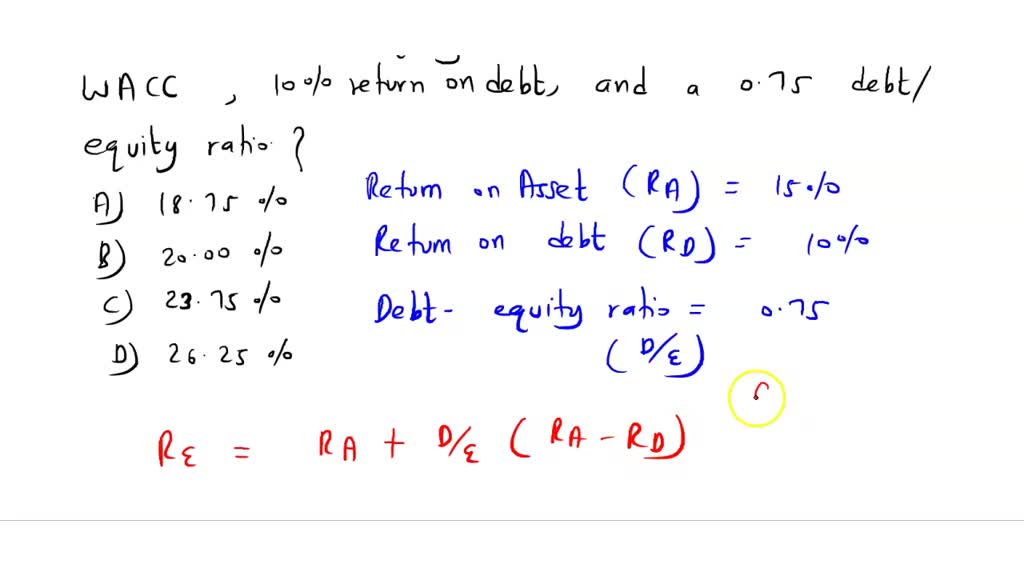 WACC , 10% return on debt, and a 0.75 debt/
equity ratio ?
A) 18.75 %
B) 20.00 %
C) 23.75 %
D) 26.25 %
Return on Asset (RA) = 15%
Return on debt (RD) = 10%
Debt- equity ratio = 0.75
(D/E)
RE = RA + D/E (RA - RD)